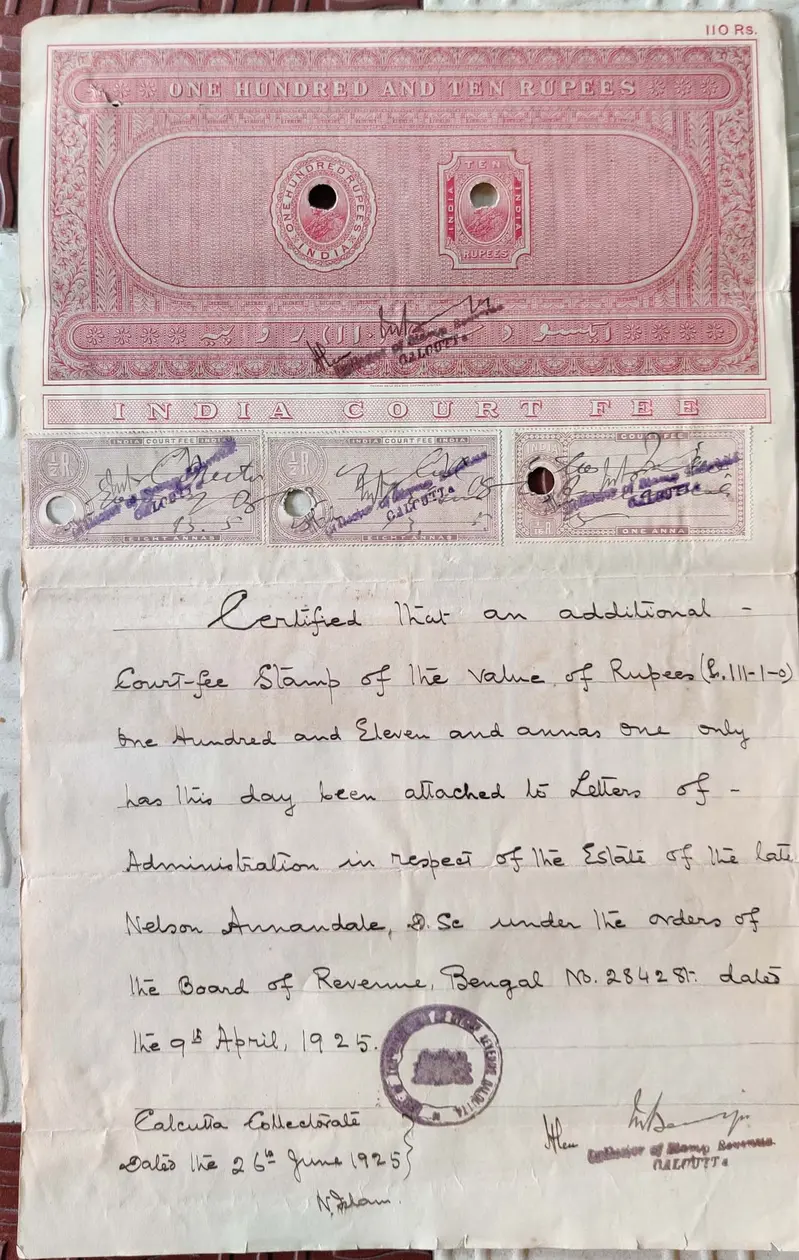 110 Rs.
ONE HUNDRED AND TEN RUPEES
ONE HUNDRED RUPEES INDIA
TEN INDIA INDIA RUPEES
Collector of Stamp Revenue
CALCUTTA
INDIA COURT FEE
INDIA COURT FEE INDIA
INDIA COURT FEE INDIA
COURT FEE
½R
½R
Collector of Stamp Revenue
CALCUTTA
Collector of Stamp Revenue
CALCUTTA
Collector of Stamp Revenue
CALCUTTA
EIGHT ANNAS
EIGHT ANNAS
ONE ANNA
Certified that an additional -
Court-fee Stamp of the value of Rupees (R.111-1-0)
One Hundred and Eleven and annas one only
has this day been attached to Letters of -
Administration in respect of the Estate of the late
Nelson Annandale, D.Sc under the orders of
the Board of Revenue, Bengal No. 2842 St. dated
the 9th April, 1925.
Calcutta Collectorate
Dated the 26th June 1925
Collector of Stamp Revenue
CALCUTTA